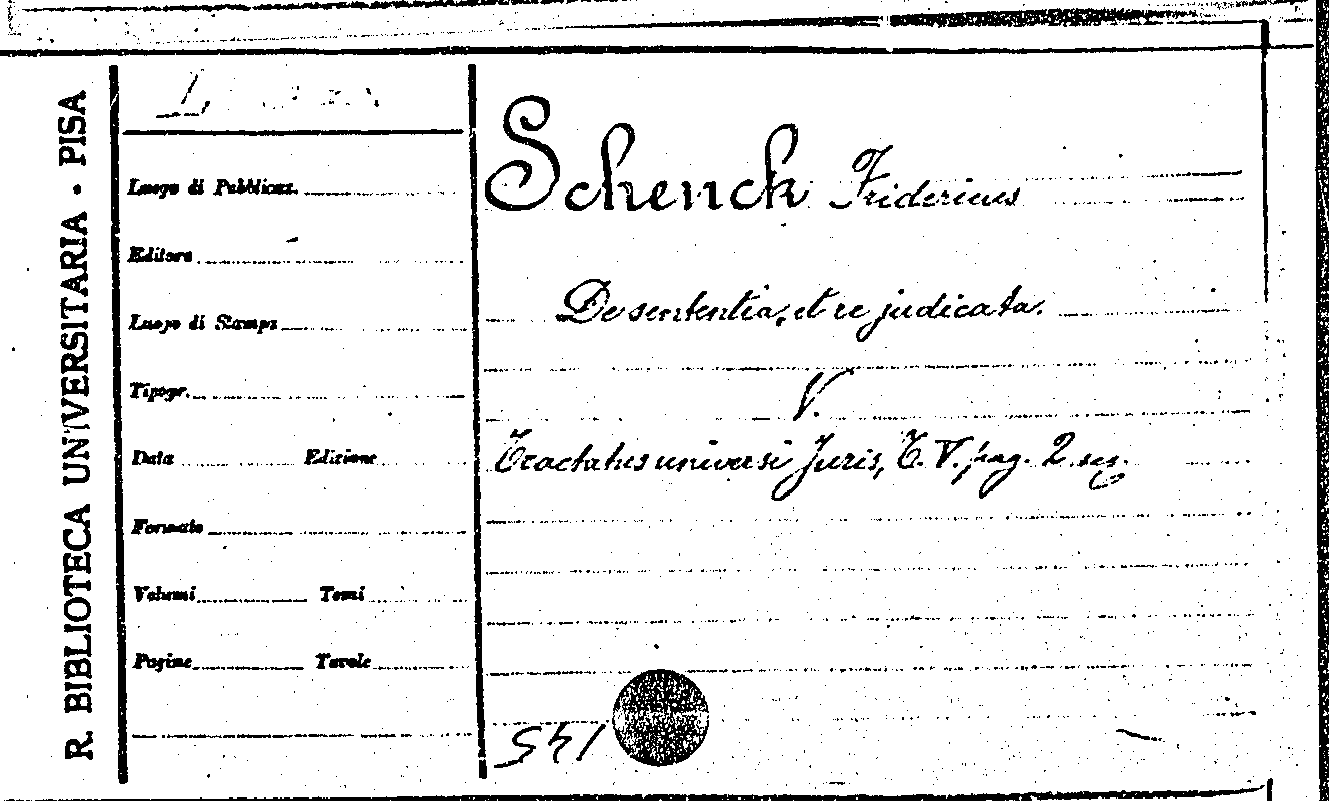 R. BIBLIOTECA UNIVERSITARIA - PISA
Luogo di Pubblicaz.
Editore
Luogo di Stampa
Tipogr.
Data Edizione
Formato
Volumi Tomi
Pagine Tavole
Schenck Fridericus
De sententia, et re judicata.
V.
Tractatus universi Juris, T. V. pag. 2 seg.